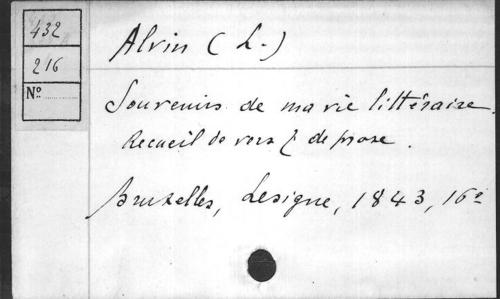 432
216
No
Alvin (L.)
Souvenirs de ma vie littéraire.
Recueil de vers & de prose.
Bruxelles, Lesigne, 1843, 16º